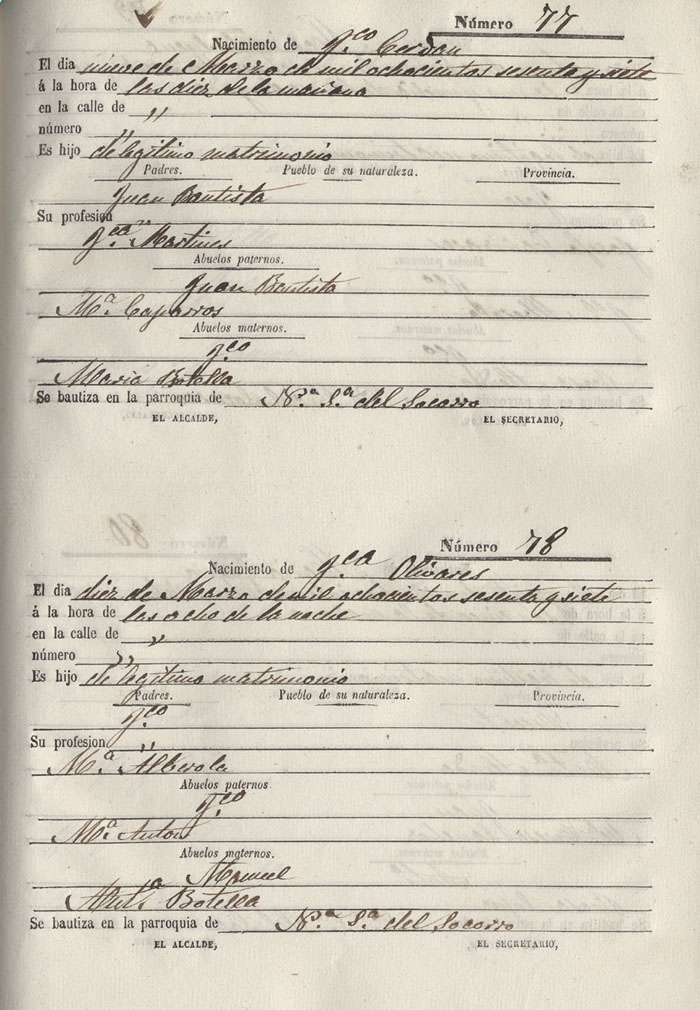 Número 77
Nacimiento de Fco Cerdan
El dia nueve de Marzo de mil ochocientos sesenta y siete
á la hora de las diez de la mañana
en la calle de "
número "
Es hijo de legitimo matrimonio
Padres. Pueblo de su naturaleza. Provincia.
Juan Bautista
Su profesion "
Fca Martines
Abuelos paternos.
Juan Bautista
Ma Caparros
Abuelos maternos.
Fco
Maria Botella
Se bautiza en la parroquia de Na Sa del Socorro
EL ALCALDE, EL SECRETARIO,
Número 78
Nacimiento de Fca Olivares
El dia diez de Marzo de mil ochocientos sesenta y siete
á la hora de las ocho de la noche
en la calle de "
número "
Es hijo de legitimo matrimonio
Padres. Pueblo de su naturaleza. Provincia.
Fco
Su profesion "
Ma Alberola
Abuelos paternos
Fco
Ma Anton
Abuelos maternos.
Manuel
Botella
Se bautiza en la parroquia de Na Sa del Socorro
EL ALCALDE, EL SECRETARIO,